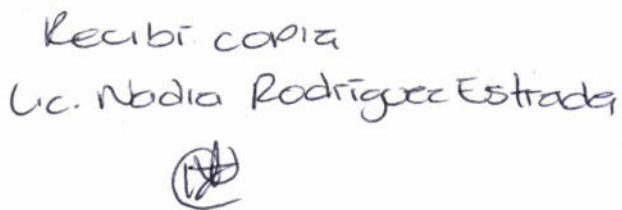 Recibí copia
Lic. Nadia Rodríguez Estrada